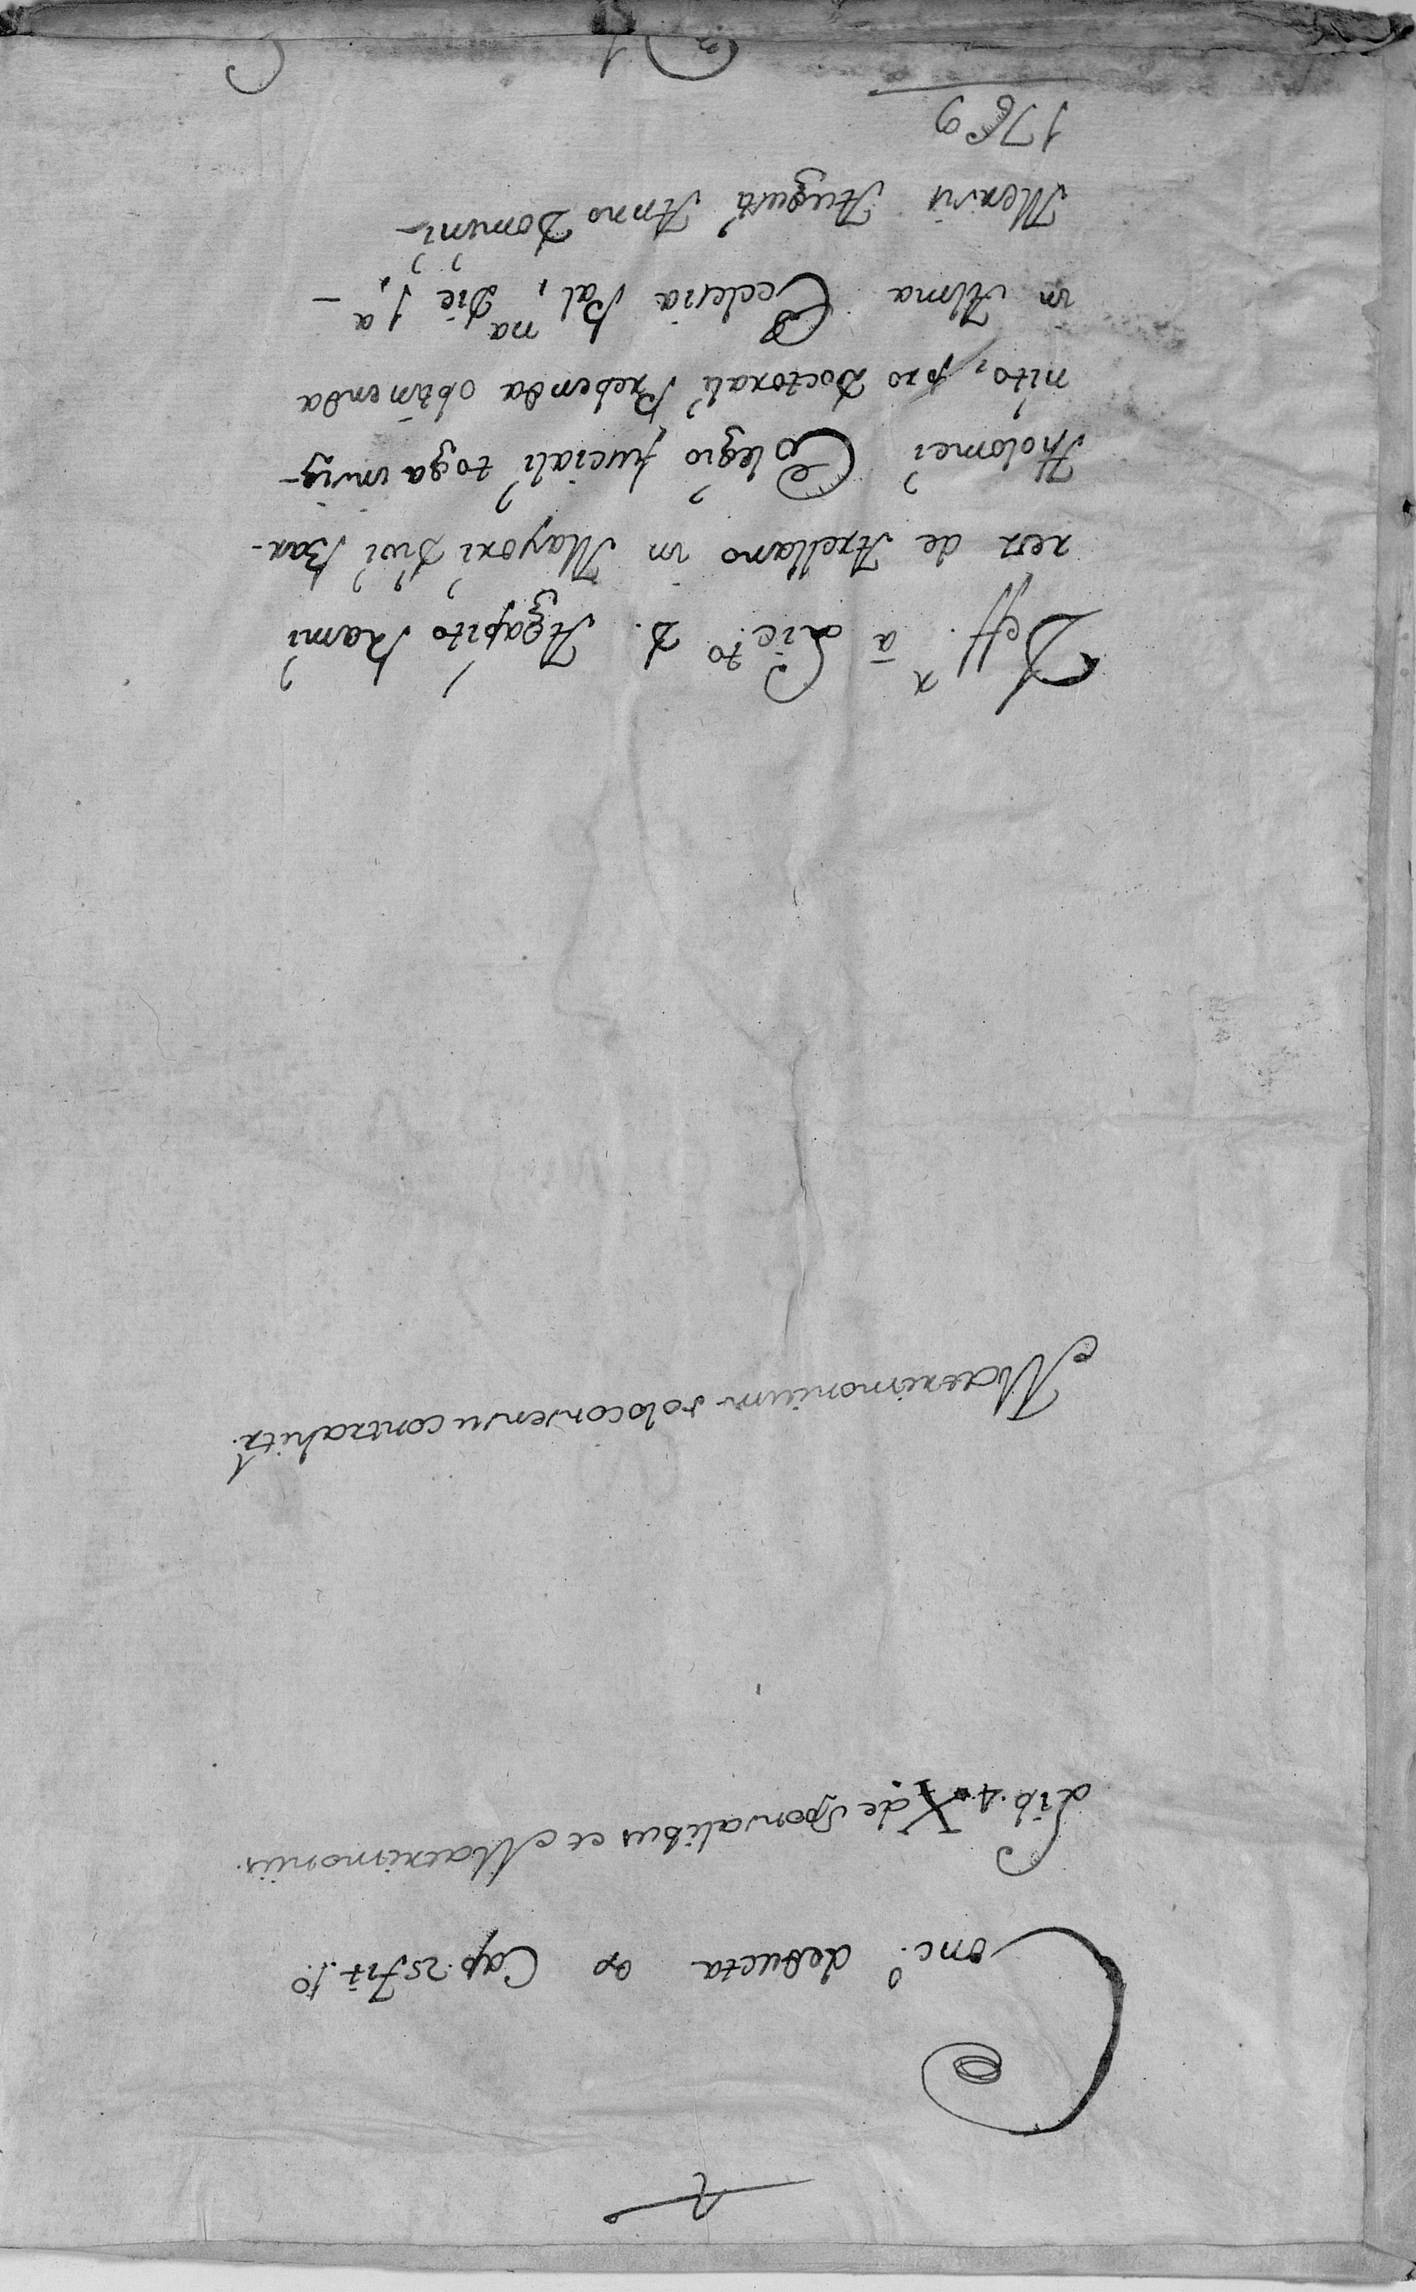 Conc.º deducta ex Cap. 25 tit. 1.º
Lib. 4. X de Sponsalibus et Matrimoniis.
Matrimonium solo consensu contrahitr.
Deff.r a Lic.to D. Agapito Rami
rez de Arellano in Mayori Divi Bar-
tholomei Colegio fuciali toga insig-
nito, pro Doctorali Prebenda obtinenda
in Alma Ecclesia Pal,na Die 1,a
Mensis Augusti Anno Domini
1769